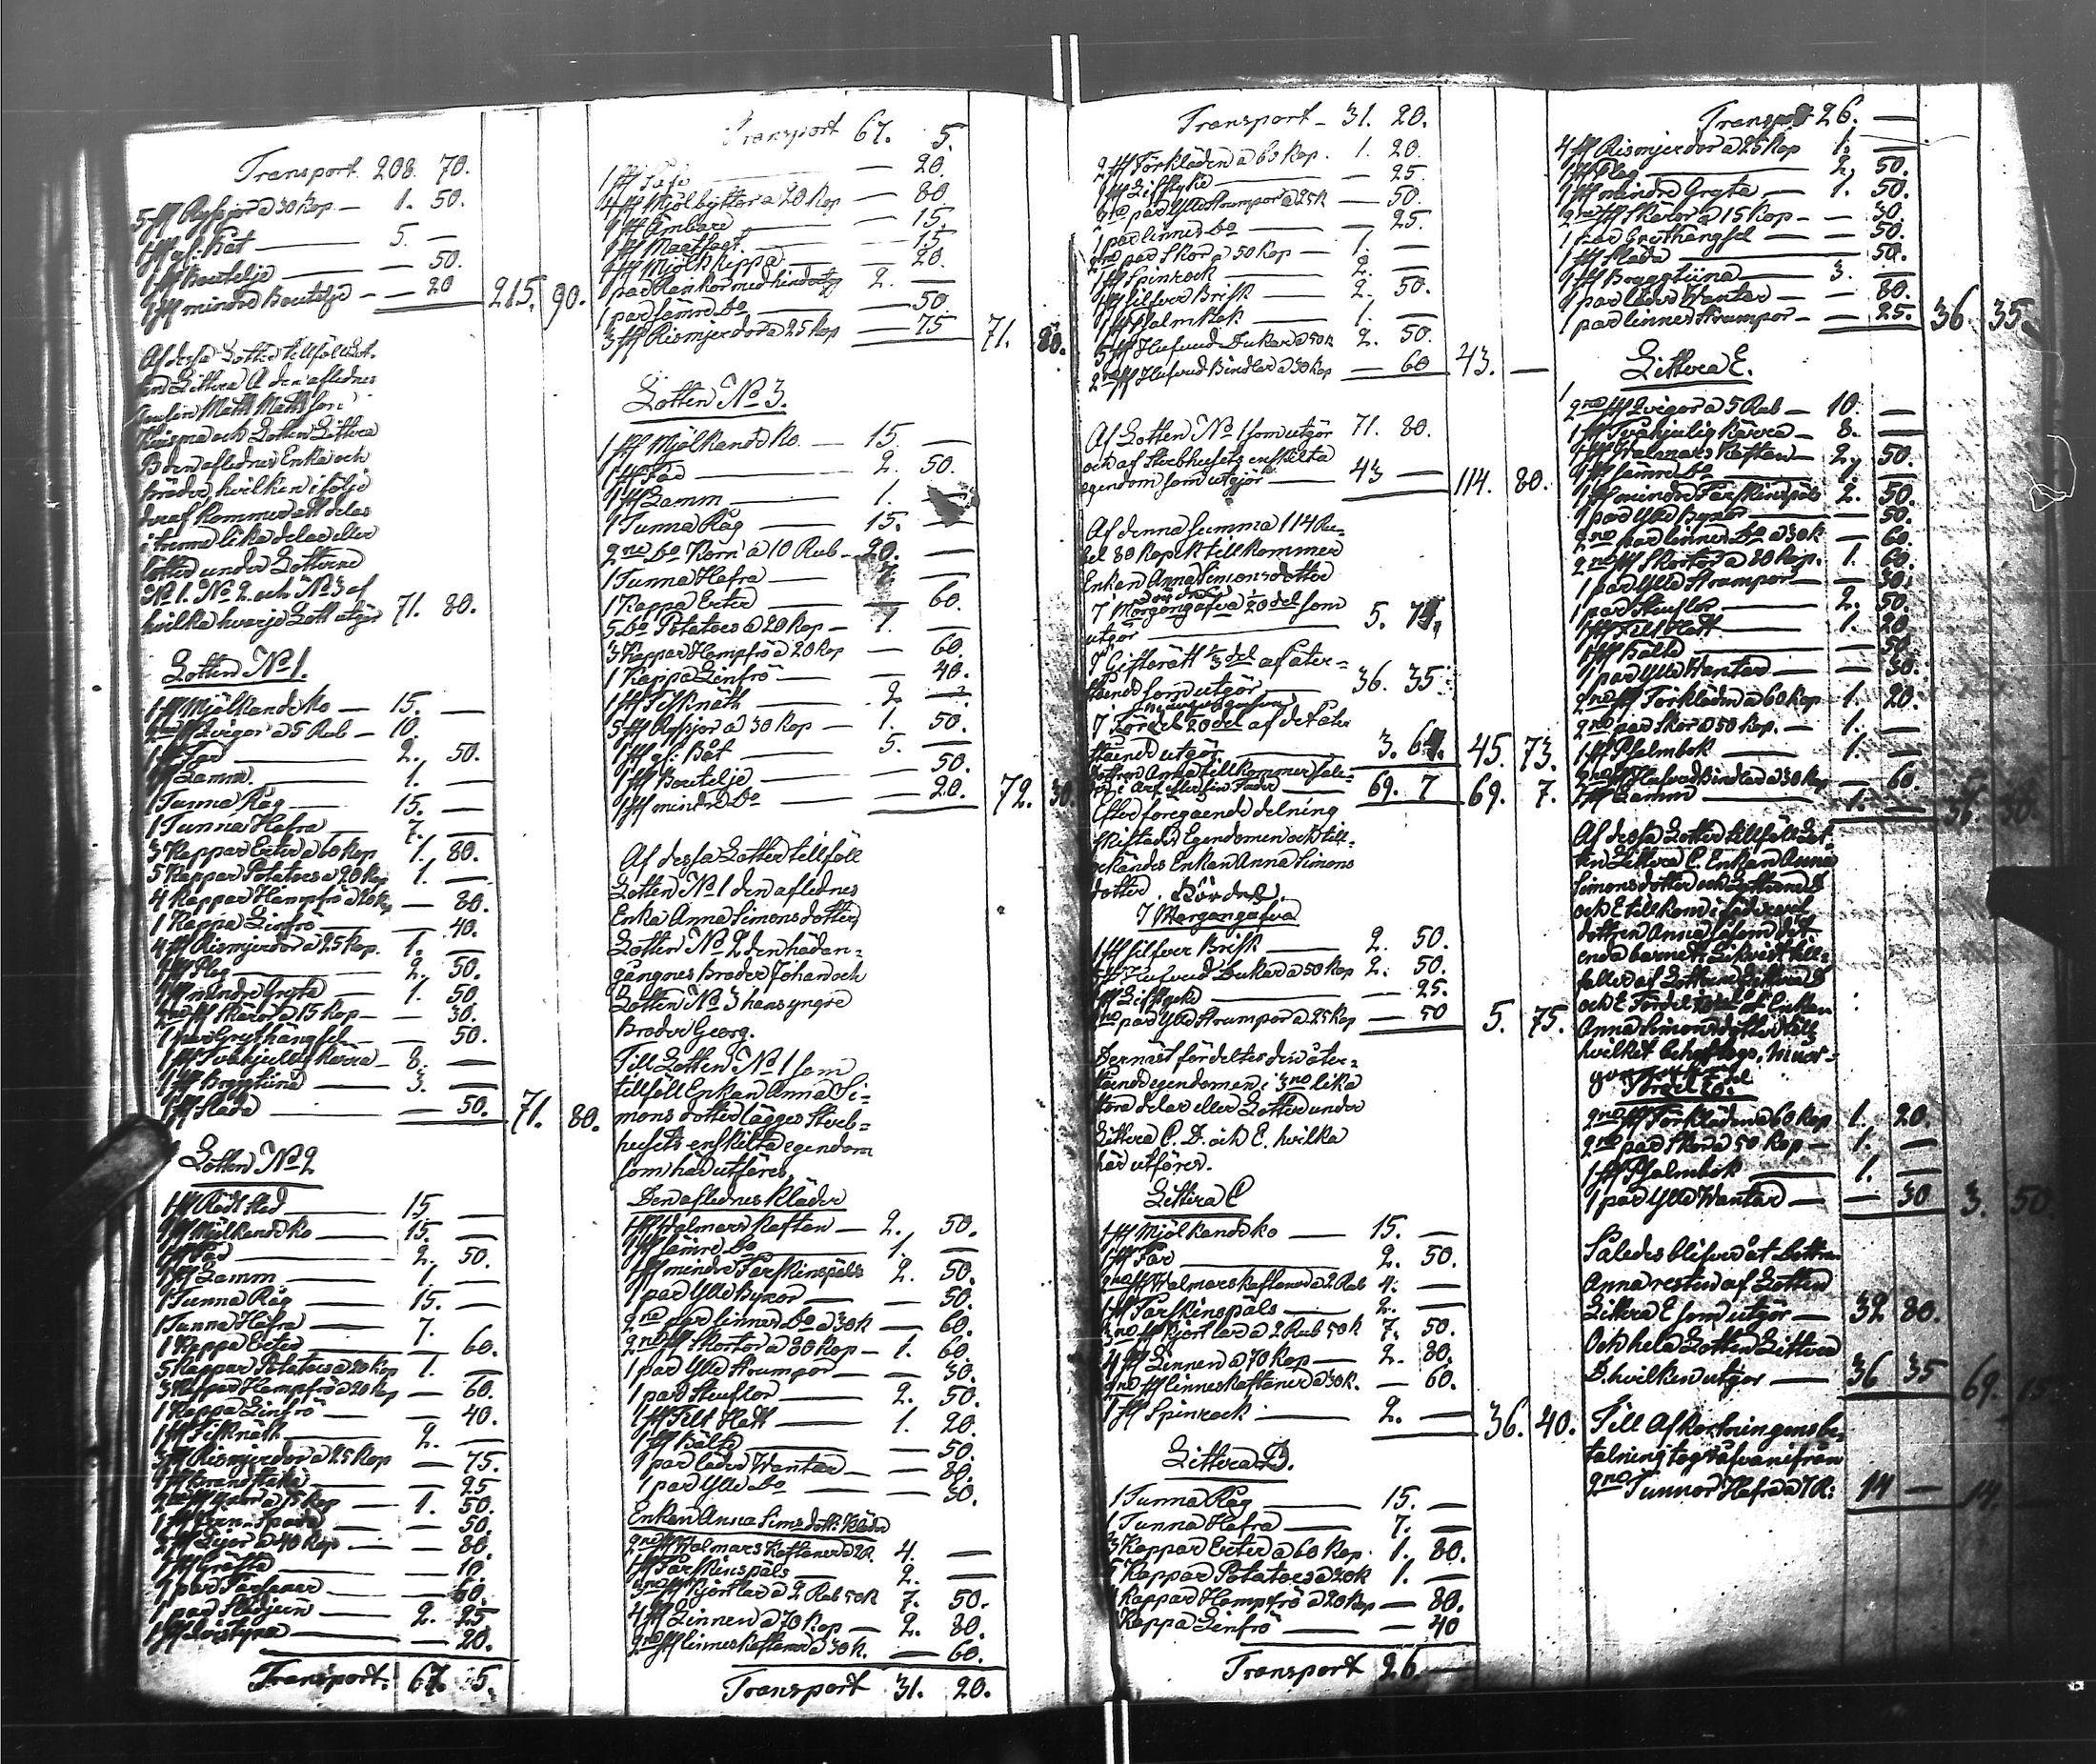 Transport 208. 70.
5 st Ryssjor a 30 Kop. — 1. 50.
1 st gl: Båt — 5. —
1 st Boutelje — — 50.
1 st mindre Boutelje — — 20 215. 90.
Af dessa Lotter tillföll Lot-
ten Littera A den aflednes
Matts Matts son
och Lotten Littera
B den aflednes Enka och
Bröder hvilken i följe
deraf kommer att delas
i trenne lika delar eller
Lotter under Lotterne
No 1. No 2. och No 3 af
hvilka hvarje Lott utgör 71. 80.
Lotten No 1.
1 st Mjölkande ko — 15. —
2ne st Qvigor a 5 Rub — 10.
1 st Får — 2. 50.
1 st Lamm — 1. —
1 Tunna Råg — 15. —
1 Tunna Hafra — 7. —
3 Kappar Erter a 60 Kop 1. 80.
5 Kappar Potatoes a 20 Kop 1. —
4 Kappar Hampfrö a 20 Kop — 80.
1 Kappa Linfrö — — 40.
4 st Rismjerdor a 25 Kop. 1. —
1 st Plog — 2. 50.
1 st mindre Gryta — 1. 50
2ne st Skäror a 15 Kop — — 30.
1 par Grythängsel — — 50.
1 st Tvåhjulig Kärra — 8. —
1 st Bryggtina — 3. —
1 st Släda — — 50. 71. 80.
Lotten No 2
1 st Rödt Sto — 15 —
1 st Mjölkande ko — 15. —
1 st Får — 2. 50.
1 st Lamm — 1. —
1 Tunna Råg — 15. —
1 Tunna Hafra — 7. —
1 Kappa Erter — — 60.
5 Kappar Potatoes a 20 Kop 1. —
3 Kappar Hampfrö a 20 Kop — 60.
1 Kappa Linfrö — — 40.
1 st Fisknäth — 2. —
3 st Rismjerdor a 25 Kop — 75.
— 25
2ne st a 75 Kop — 1. 50.
1 st Jern-Spada — — 50.
2 st Lijor a 40 Kop — — 80.
1 st Gräfta — — 10.
1 par — 60.
1 par — 2. 25
1 st — — 20.
Transport. 67. 5.
Transport 67. 5.
1 st — 20.
4 st Mjölbyttor a 20 Kop — 80.
1 st Ämbare — — 15.
1 st Maatfagt. — — 15.
1 st Mjölkkippa — — 20.
1 par 2. —
1 par sämre Do — — 50.
3 st Rismjerdor a 25 Kop — 75 71. 80.
Lotten No 3.
1 st Mjölkande ko. — 15. —
1 st Får — 2. 50.
1 st Lamm — 1. —
1 Tunna Råg — 15. —
2ne Do Korn a 10 Rub — 20. —
1 Tunna Hafra — 7. —
1 Kappa Erter — — 60.
5 Do Potatoes a 20 Kop — 1. —
3 Kappar Hampfrö a 20 Kop — 60.
1 Kappa Linfrö — — 40.
1 st Fisknäth — 2 —
5 st Ryssjor a 30 Kop — 1. 50.
1 st gl: Båt — 5. —
1 st Boutelje — — 50.
1 st mindre Do — — 20. 72. 30.
Af dessa Lotter tillföll
Lotten No 1 den aflednes
Enka Anna Simonsdotter,
Lotten No 2 den hädan-
gångnes Broder Johan och
Lotten No 3 hans yngre
Broder Georg.
Till Lotten No 1 som
tillföll Enkan Anna Si-
monsdotter lägges Sterb-
husets enskilta egendom
som här utföres.
Den aflednes Kläder
1 st Valmars Kaftan — 2. 50.
1 st sämre Do — 1. —
1 st mindre Fårskinspäls 2. 50.
1 par Ylle Byxor — — 50.
2ne par linnes Do a 30 K — 60.
2ne st Skjortor a 80 Kop — 1. 60
1 par Ylle Strumpor — — 30.
1 par Steuflor — 2. 50.
1 st Filt Hatt — 1. 20.
1 st Bälte — — 50.
1 par läder Wantar — — 80.
1 par Ylle Do — — 30.
Enkan Anna Simsdotts: Kläder
2ne st Valmars Kaftaner a 2 R. 4. —
1 st Fårskinspäls — 2. —
3ne st Kjortlar a 2 Rub 50 K 7. 50.
4 st Linnen a 70 Kop — 2. 80.
2ne st linneskaftaner a 30 K. — 60.
Transport 31. 20.
Transport — 31. 20.
2 st Förkläden a 60 Kop. 1. 20.
1 st Lifstycke — — 25.
2ne par Ylle Strumpor a 25 K — 50.
1 par linnes Do — — 25.
2ne par Skor a 50 Kop — 1. —
1 st Spinrock — 2. —
1 st Silfver Brisk — 2. 50.
1 st Psalmbok — 1. —
5 st Hufvud Dukar a 50 K 2. 50.
2ne st Hufvud Bindlar a 30 Kop — 60 43. —
Af Lotten No 1 som utgör 71. 80.
och af Sterbhusets enskilta
egendom som utgör — 43 — 114. 80.
Af denna summa 114 Ru-
bel 80 Kopek tillkommer
Enkan Anna Simonsdotter
I Morgongåfva 1/20 del som
utgör — 5. 74.
I Giftorätt 1/3 del af åter-
ståend som utgör — 36. 35.
I Fördel 20 del af det åter
ståend utgör — 3. 64. 45. 73.
dottren Anna tillkommer såle-
des i Arf efter sin Fader — 69. 7 69. 7.
Efter föregående delning
skiftades Egendomen och till-
erkändes Enkan Anna Simons
dotter.
I Morgongåfva
1 st Silfver Brisk — 2. 50.
5 st Hufvud Dukar a 50 Kop 2. 50.
1 st Lifstycke — — 25.
2ne par Ylle Strumpor a 25 Kop — 50 5. 75.
Dernäst fördeltes den åter-
ståend egendomen i 3ne lika
stora delar eller Lotter under
Littera C. D. och E. hvilka
här utföres.
Littera C
1 st Mjölkande ko — 15. —
1 st Får — 2. 50.
2ne st Valmars kaftaner a 2 Rub 4. —
1 st Fårskinspäls — 2. —
3ne st Kjortlar a 2 Rub 50 K 7. 50.
4 st Linnen a 70 Kop — 2. 80.
2ne st linneskaftaner a 30 K. — 60.
1 st Spinrock — 2. — 36. 40.
Littera D.
1 Tunna Råg — 15. —
1 Tunna Hafra — 7. —
3 Kappar Erter a 60 Kop. 1. 80.
5 Kappar Potatoes a 20 K 1. —
4 Kappar Hampfrö a 20 Kop — 80.
1 Kappa Linfrö — — 40
Transport 26. —
Transport 26. —
4 st Rismjerdor a 25 Kop 1. —
1 st Plog — 2. 50.
1 st mindre Gryta — 1. 50.
2ne st Skäror a 15 Kop — — 30.
1 par Grythängsel — — 50.
1 st Släda — 50.
1 st Bryggtiina — 3. —
1 par läder Wantar — — 80.
1 par linnes Strumpor — — 25. 36 35.
Littera E.
2ne st Qvigor a 5 Rub — 10. —
1 st Tvåhjulig Kärra — 8. —
1 st Valmars Kaftan — 2. 50.
1 st sämre Do — 1. —
1 st mindre Fårskinspäls 2. 50.
1 par Ylle Byxor — 50.
2ne par linnes Do a 30 K — 60.
2ne st Skortor a 80 Kop. 1. 60.
1 par Ylle Strumpor — — 30.
1 par Steuflor — 2. 50.
1 st Filt Hatt — 1. 20
1 st Bälte — — 50.
1 par Ylle Wantar — — 30.
2ne st Förkläden a 60 Kop 1. 20.
2ne par Skor a 50 Kop. — 1. —
1 st Psalmbok — 1. —
2ne st Hufvud Bindlar a 30 Kop — 60.
1 st Lamm — 1. —
Af dessa Lotter tillföll Lot-
ten Littera C. Enkan Anna
Simonsdotter och Lotterne D
och E tillkom i fäderne arf
dottren Anna såsom det
enda barnet. Likväl till-
faller af Lotterne Littera D
och E Fördel Enkan
Anna Simonsdotter till
hvilket
2ne st Förkläden a 60 Kop 1. 20.
2ne par Skor a 50 Kop — 1. —
1 st Psalmbok — 1. —
1 par Ylle Wantar — — 30 3. 50.
Således blifver åt dottren
Anna resten af Lotten
Littera E som utgör — 32 80.
Och hela Lotten Littera
D. hvilken utgör — 36 35 69. 15.
Till Afkortningens be-
talning togs åfvanifrån
2ne Tunnor Hafra a 7 R: 14 — 14.